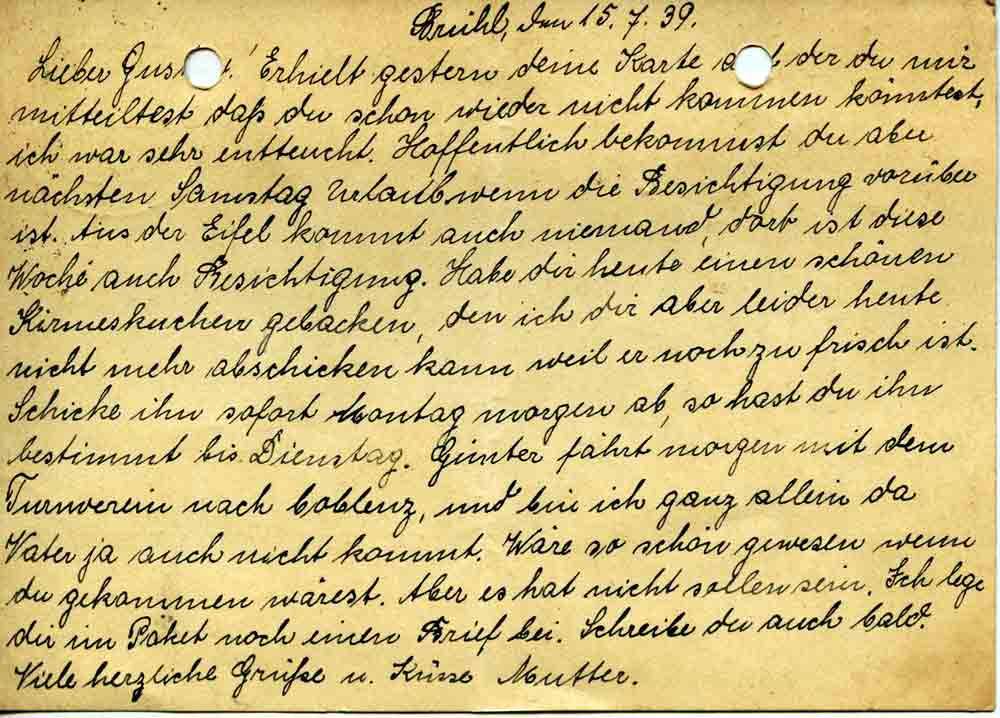 Brühl, den 15. 7. 39.
Lieber Gus ! Erhielt gestern deine Karte der du mir
mitteiltest daß du schon wieder nicht kommen könntest,
ich war sehr entteucht. Hoffentlich bekommst du aber
nächsten Samstag Urlaub wenn die Besichtigung vorüber
ist. Aus der Eifel kommt auch niemand, dort ist diese
Woche auch Besichtigung. Habe dir heute einen schönen
Kirmeskuchen gebacken, den ich dir aber leider heute
nicht mehr abschicken kann weil er noch zu frisch ist.
Schicke ihn sofort Montag morgen ab, so hast du ihn
bestimmt bis Dienstag. Günter fährt morgen mit dem
Turnverein nach Coblenz, und bin ich ganz allein da
Vater ja auch nicht kommt. Wäre so schön gewesen wenn
du gekommen wärest. Aber es hat nicht sollen sein. Ich lege
dir im Paket noch einen Brief bei. Schreibe du auch bald.
Viele herzliche Grüße u. Küsse Mutter.